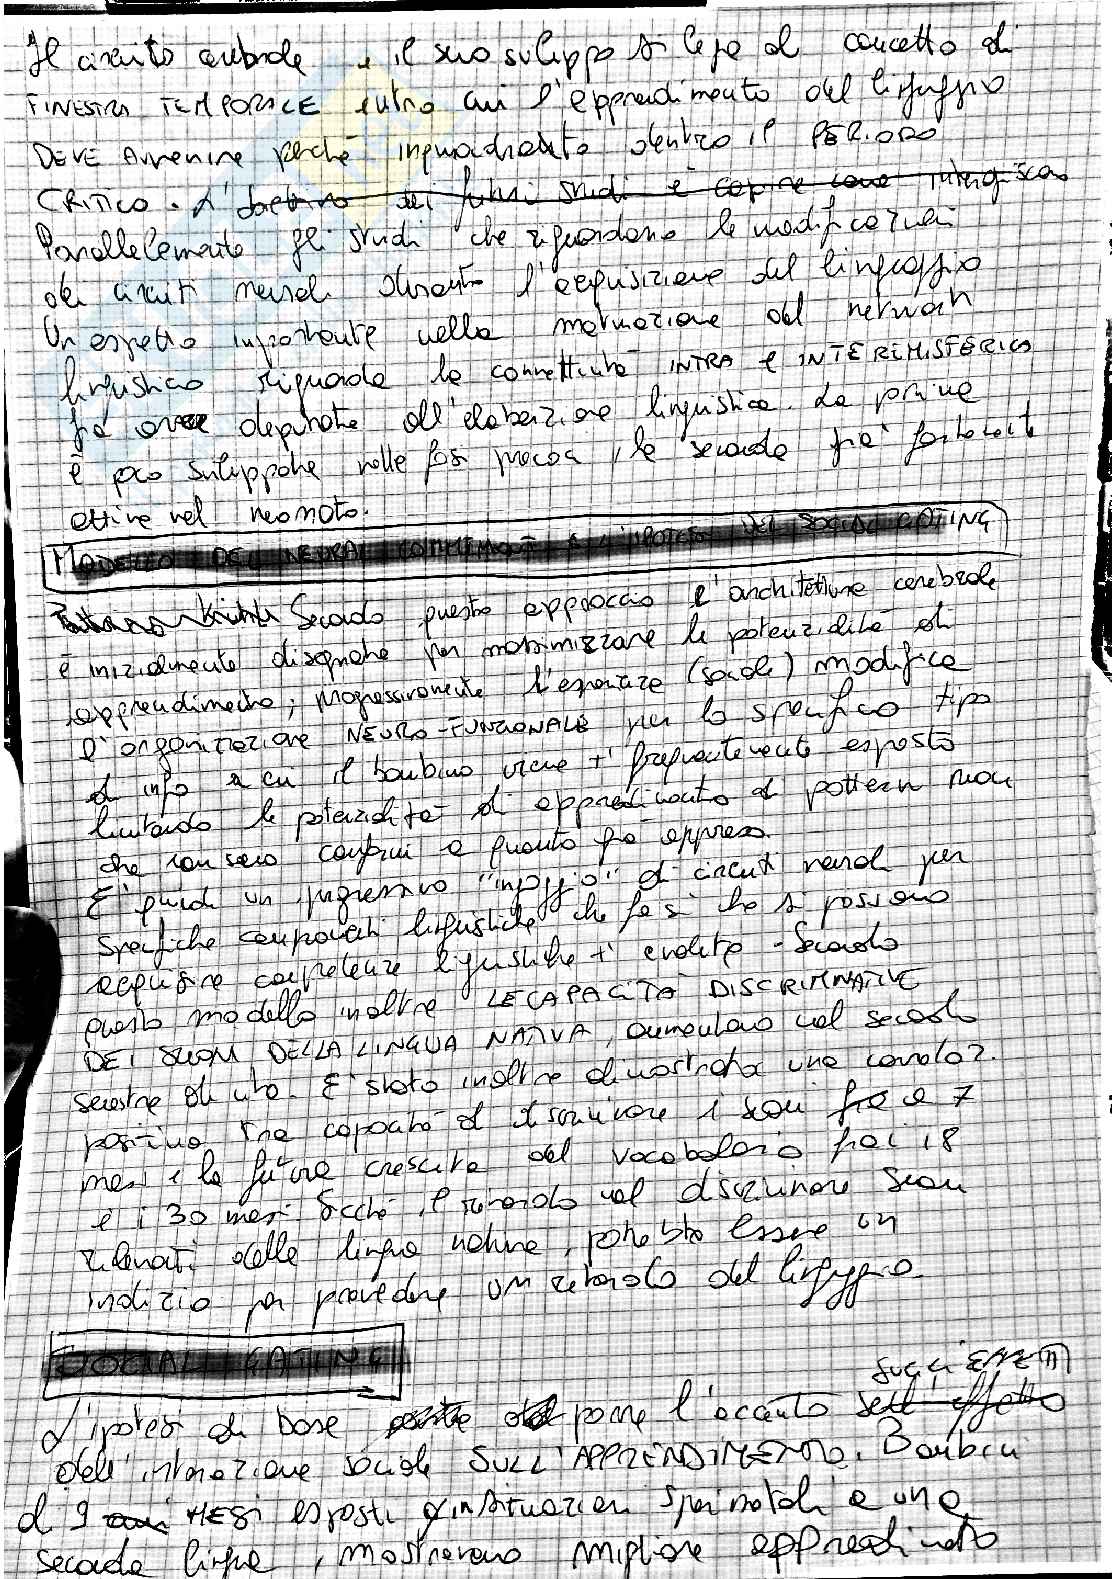 Il circuito cerebrale e il suo sviluppo si lega al concetto di
FINESTRA TEMPORALE entro cui l'apprendimento del linguaggio
DEVE AVVENIRE perché inquadrato dentro il PERIODO
CRITICO. L'obiettivo dei futuri studi è capire come interagiscono
Parallelamente gli studi che riguardano le modificazioni
dei circuiti neurali durante l'acquisizione del linguaggio
Un aspetto importante nella maturazione del network
linguistico riguarda la connettività INTRA e INTEREMISFERICA
fra aree deputate all'elaborazione linguistica. La prima
è poco sviluppata nelle fasi precoci, la seconda già fortemente
attiva nel neonato.
MODELLO DEL NEURAL COMMITMENT E L'IPOTESI DEL SOCIAL GATING
Secondo questo approccio l'architettura cerebrale
è inizialmente disegnata per massimizzare le potenzialità di
apprendimento; progressivamente l'esperienza (sociale) modifica
l'organizzazione NEURO-FUNZIONALE per lo specifico tipo
di info a cui il bambino viene + frequentemente esposto
limitando le potenzialità di apprendimento di pattern nuovi
che non sono conformi a quanto già appreso.
E' quindi un progressivo "ingaggio" di circuiti neurali per
specifiche componenti linguistiche che fa sì che si possano
acquisire competenze linguistiche + evolute. Secondo
questo modello inoltre LE CAPACITÀ DISCRIMINATIVE
DEI SUONI DELLA LINGUA NATIVA, aumentano nel secondo
semestre di vita. E' stata inoltre dimostrata una correlaz.
positiva tra capacità di discriminare i suoni fra e 7
mesi e la futura crescita del vocabolario fra i 18
e i 30 mesi. Sicché il ritardo nel discriminare suoni
rilevanti della lingua nativa, potrebbe essere un
indizio per prevedere un ritardo del linguaggio.
SOCIAL GATING
SUGLI EFFETTI
L'ipotesi di base pone l'accento sull'effetto
dell'interazione sociale SULL'APPRENDIMENTO. Bambini
di 9 anni MESI esposti in situazioni sperimentali a una
seconda lingua, mostravano migliore apprendimento